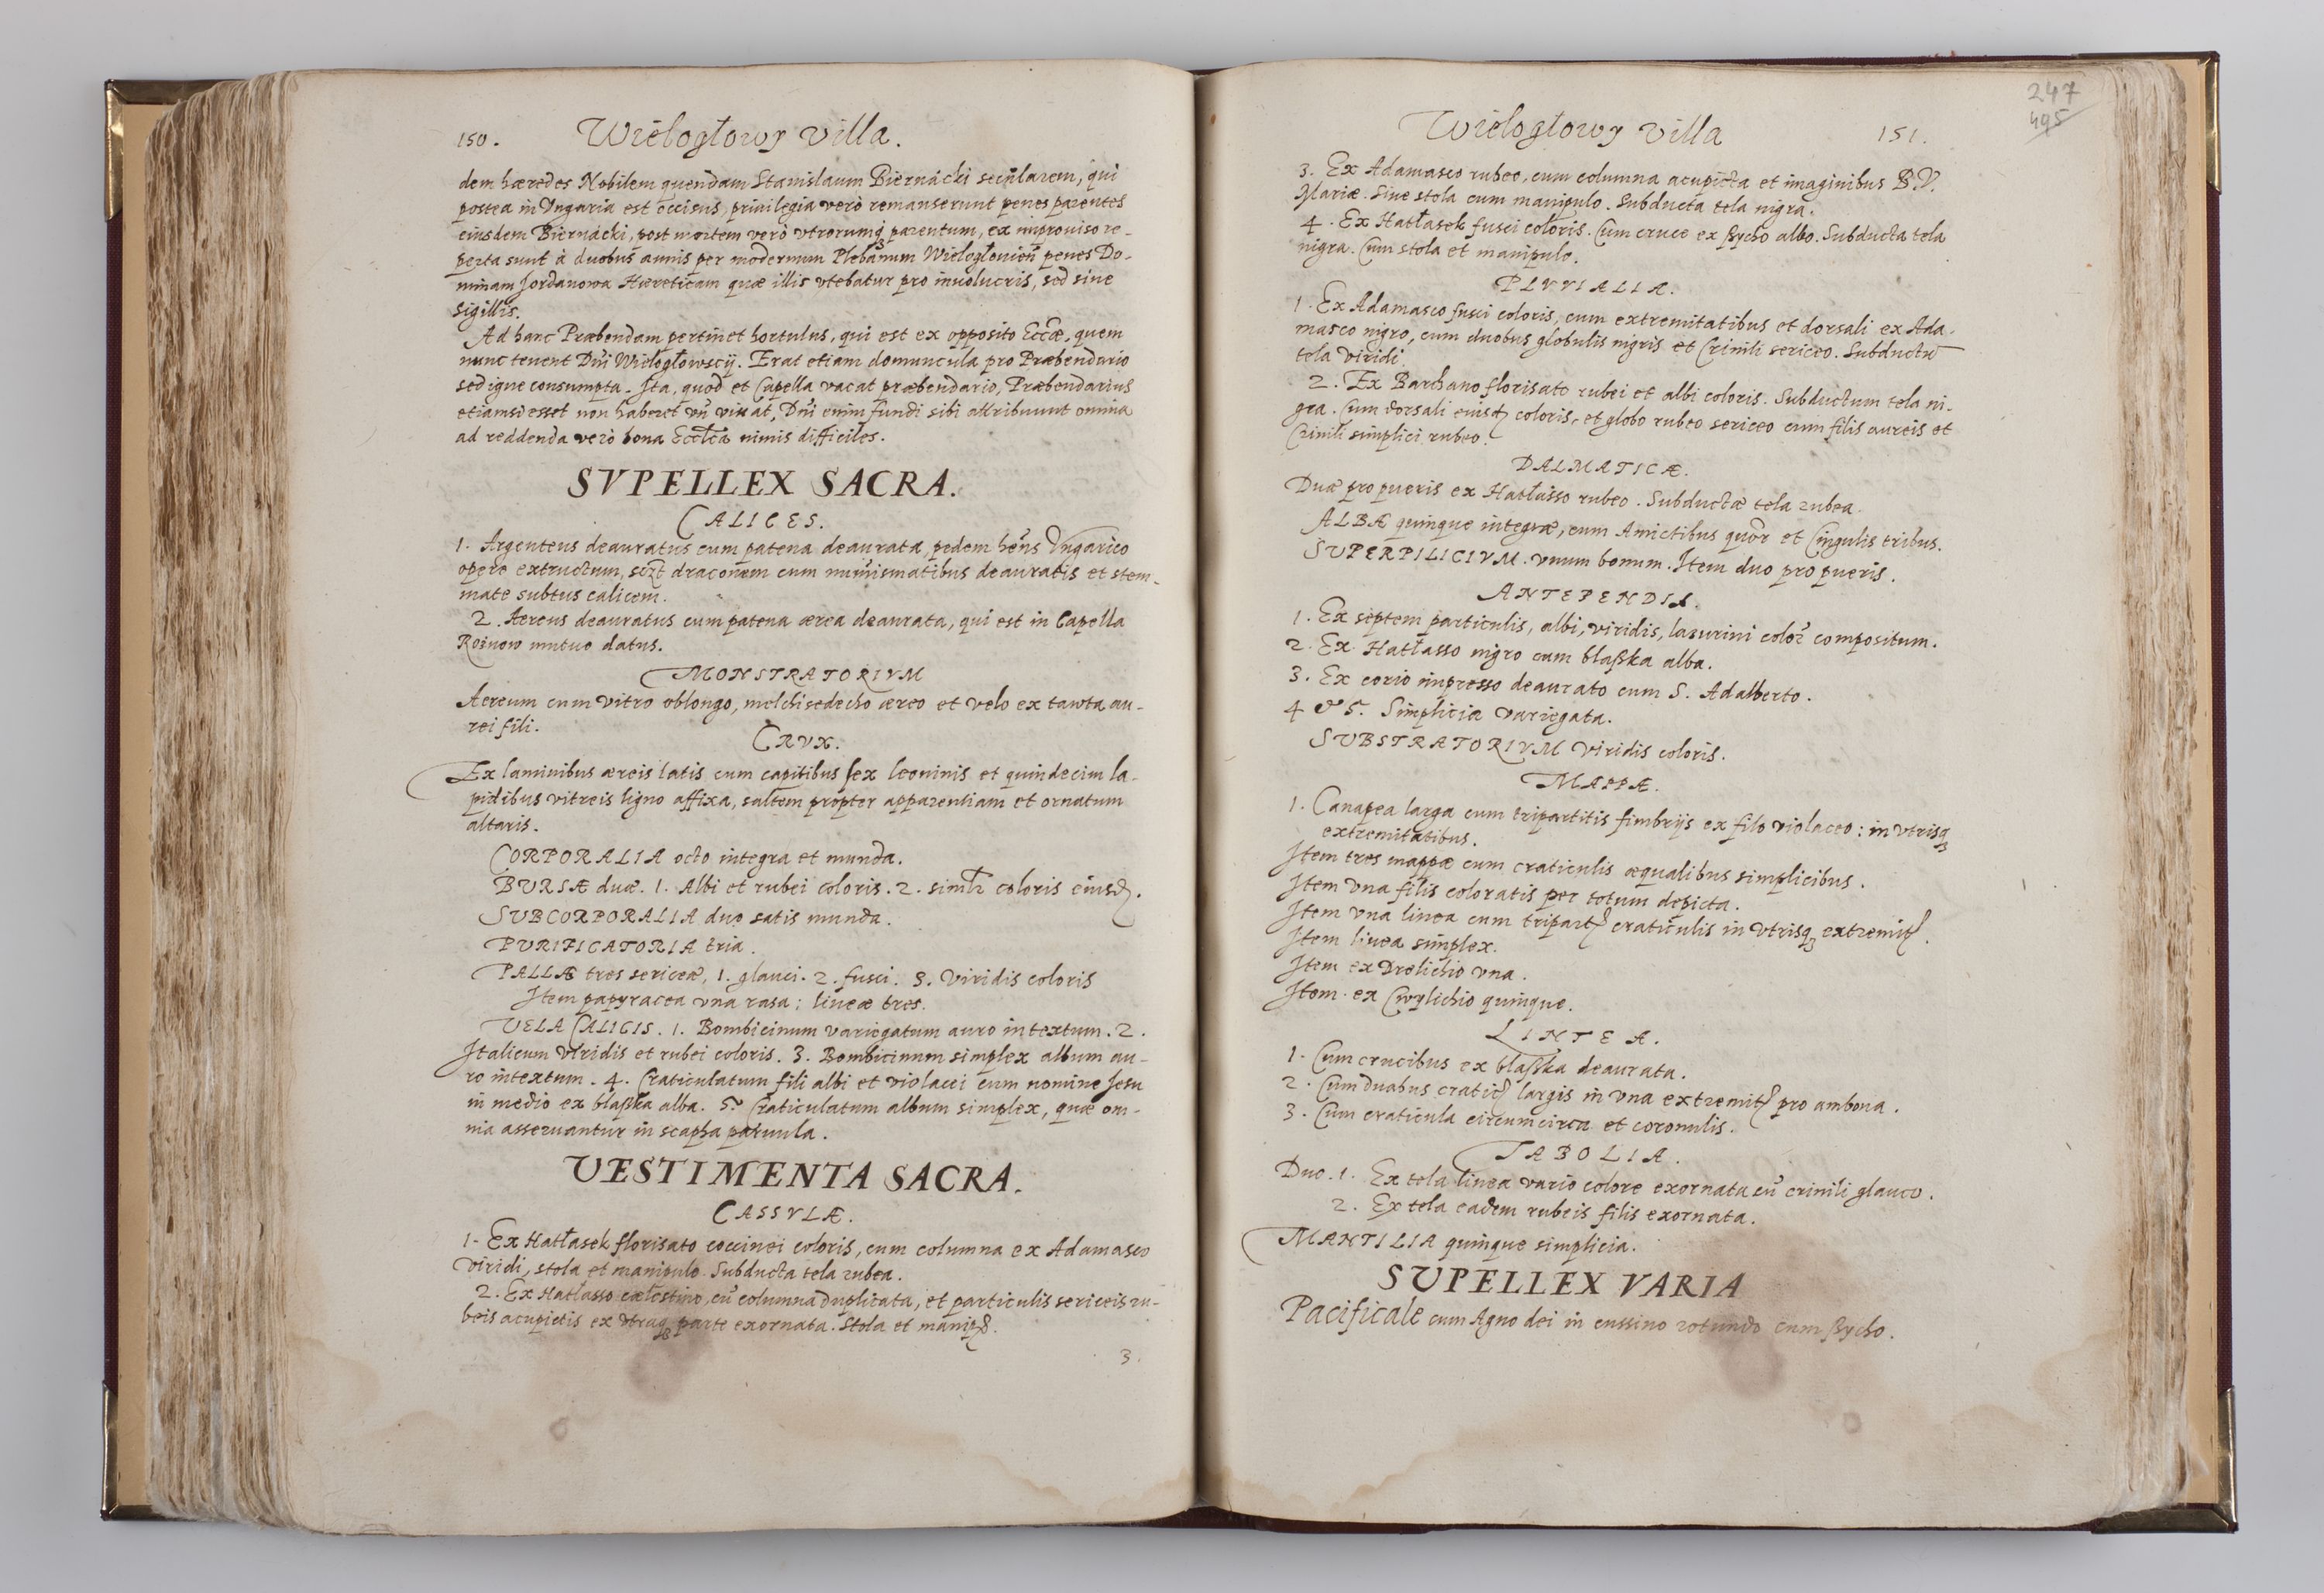 150. Wielogłowy Villa.
dem hæredes Nobilem quendam Stanislaum Biernácki secularem, qui
postea in Vngaria est occisus, priuilegia verò remanserunt penes parentes
eiusdem Biernácki, post mortem verò vtrorumq parentum, ex improuiso re-
perta sunt à duobus annis per modernum Plebanum Wielogłouien penes Do-
minam Jordanowa Hæreticam quæ illis vtebatur pro inuolucris, sed sine
sigillis.
Ad hanc Præbendam pertinet hortulus, qui est ex opposito Eccæ, quem
nunc tenent Dni Wielogłowscij. Erat etiam domuncula pro Præbendario
sed igne consumpta. Ita, quod et Capella vacat præbendario, Præbendarius
etiamsi esset non haberet vn viuat, Dni enim fundi sibi attribuunt omnia
ad reddenda verò bona Eccłæ nimis difficiles.
SVPELLEX SACRA.
CALICES.
1. Argenteus deauratus cum patena deaurata, pedem hens Vngarico
opere extructum, draconem cum numismatibus deauratis et stem-
mate subtus calicem.
2. Aereus deauratus cum patena ærea deaurata, qui est in Capella
Roznow mutuo datus.
MONSTRATORIVM
Aereum cum vitro oblongo, melchisedecho æreo et velo ex tawta au-
rei fili.
CRVX.
Ex laminibus æreis latis cum capitibus sex leoninis et quindecim la-
pidibus vitreis ligno affixa, saltem propter apparentiam et ornatum
altaris.
CORPORALIA octo integra et munda.
BURSÆ duæ. 1. Albi et rubei coloris. 2. simłr coloris eiusd.
SUBCORPORALIA duo satis munda.
PVRIFICATORIA tria.
PALLÆ tres sericeæ, 1. glauci. 2. fusci. 3. Viridis coloris
Item papyracea vna rasa: lineæ tres.
VELA CALICIS. 1. Bombicinum variegatum auro intextum. 2.
Italicum viridis et rubei coloris. 3. Bombicinum simplex album au-
ro intextum. 4. Craticulatum fili albi et violacei cum nomine Jesu
in medio ex blaßka alba. 5. Craticulatum album simplex, quæ om-
nia asseruantur in scapha paruula.
VESTIMENTA SACRA.
CASSVLÆ.
1. Ex Hatłasek florisato coccinei coloris, cum columna ex Adamasco
viridi, stola et manipulo. Subducta tela rubea.
2. Ex Hatłasso cælestino, cu columna duplicata, et particulis sericeis ru-
beis acupictis ex vtraq parte exornata. Stola et manip.
3.
247
495
Wielogłowy Villa 151.
3. Ex Adamasco rubeo, cum columna acupicta et imaginibus B.V.
Mariæ. Sine stola cum manipulo. Subducta tela nigra.
4. Ex Hatłasek fusci coloris. Cum cruce ex ßycho albo. Subducta tela
nigra. Cum stola et manipulo.
PLVVIALIA.
1. Ex Adamasco fusci coloris, cum extremitatibus et dorsali ex Ada-
masco nigro, cum duobus globulis nigris et Crinili sericeo. Subductu
tela viridi
2. Ex Barchano florisato rubei et albi coloris. Subductum tela ni-
gra. Cum dorsali eiusd coloris, et globo rubeo sericeo cum filis aureis et
Crinili simplici rubeo.
DALMATICÆ.
Duæ pro pueris ex Hatłasso rubeo. Subductæ tela rubea.
ALBÆ quinque integræ, cum Amictibus quor et Cingulis tribus.
SUPERPILICIVM. vnum bonum. Item duo pro pueris.
ANTEPENDIA.
1. Ex septem particulis, albi, viridis, lazurini color compositum.
2. Ex Hatłasso nigro cum blaßka alba.
3. Ex corio impresso deaurato cum S. Adalberto.
4 & 5. Simplicia variegata.
SUBSTRATORIVM viridis coloris.
MAPPÆ.
1. Canapea larga cum tripartitis fimbrijs ex filo violaceo: in vtrisq
extremitatibus.
Item tres mappæ cum craticulis æqualibus simplicibus.
Item vna filis coloratis per totum depicta.
Item vna linea cum tripart craticulis in vtrisq extremit.
Item linea simplex.
Item ex Drelichio vna.
Item ex Cwylichio quinque.
LINTEA.
1. Cum crucibus ex blaßka deaurata.
2. Cum duabus cratic largis in vna extremit pro ambona.
3. Cum craticula circumcirca et coronulis.
TABOLIA.
Duo. 1. Ex tela linea vario colore exornata cu crinili glauco.
2. Ex tela eadem rubeis filis exornata.
MANTILIA quinque simplicia.
SUPELLEX VARIA
Pacificale cum Agno dei in cussino rotundo cum ßycho.